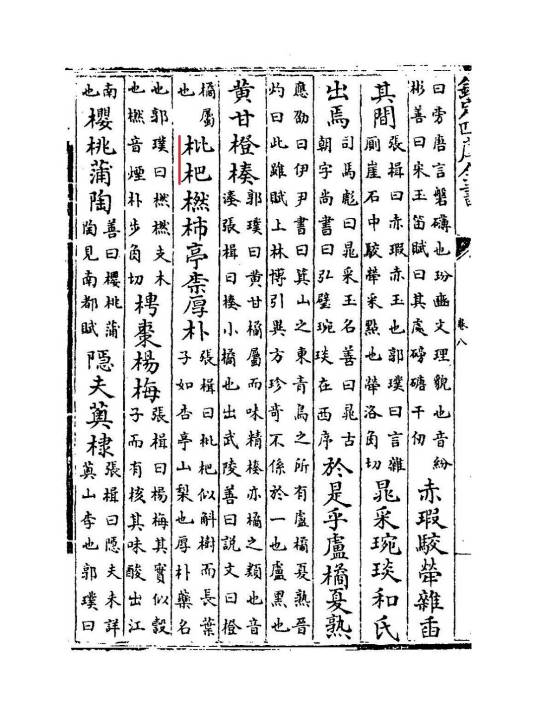 欽定四庫全書 卷八
曰旁唐言磐礴也玢豳文理貌也音紛彬善曰宋玉笛賦曰其處磅磄千仞赤瑕駮犖雜臿
其間張揖曰赤瑕赤玉也郭璞曰言雜厠崖石中駮犖采點也犖洛角切鼂采琬琰和氏
出焉司馬彪曰鼂采玉名善曰鼂古朝字尚書曰弘璧琬琰在西序於是乎盧橘夏熟
應劭曰伊尹書曰箕山之東青鳥之所有盧橘夏熟晉灼曰此雖賦上林博引異方珍竒不係於一也盧黒也
黄甘橙楱郭璞曰黄甘橘屬而味精楱亦橘之類也音湊張揖曰楱小橘也出武陵善曰説文曰橙
橘屬也枇杷橪柿亭柰厚朴張揖曰枇杷似斛樹而長葉子如杏亭山梨也厚朴藥名
也郭璞曰橪橪支木也橪音煙朴步角切梬棗楊梅張揖曰楊梅其實似榖子而有核其味酸出江
南也櫻桃蒲陶善曰櫻桃蒲陶見南都賦隱夫薁棣張揖曰隱夫未詳薁山李也郭璞曰